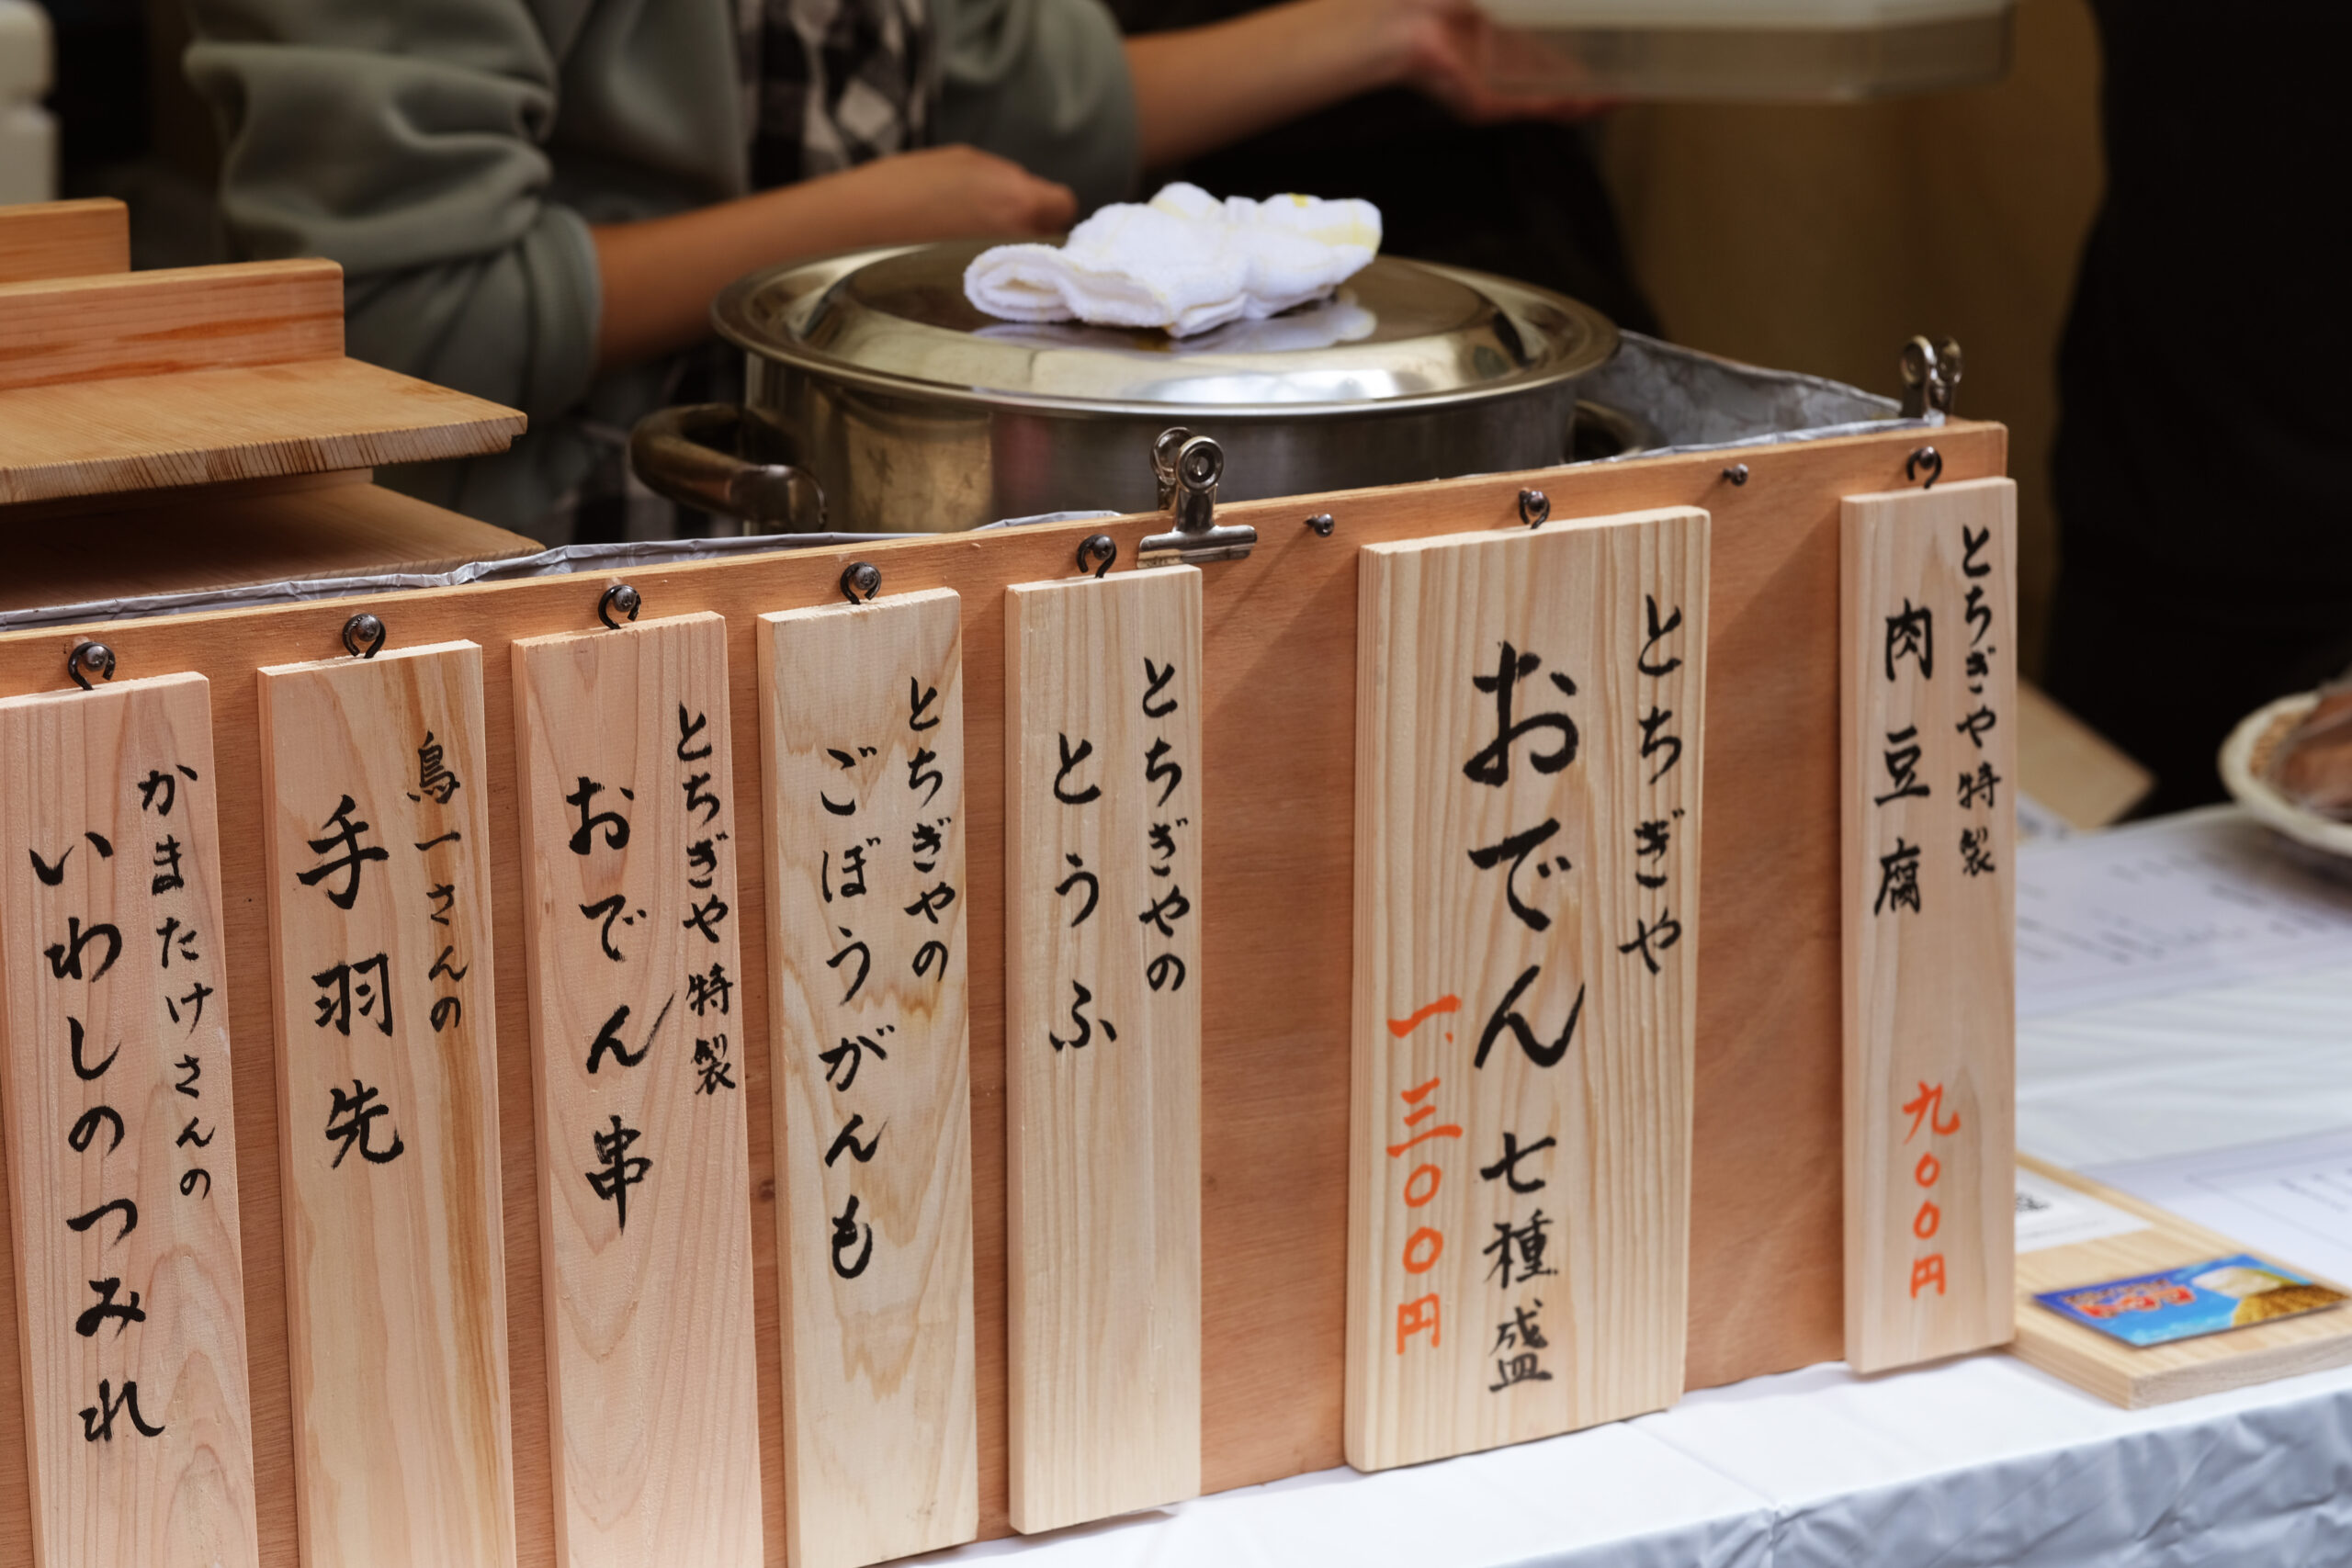 とちぎや特製
肉豆腐
九〇〇円
とちぎや
おでん七種盛
一、三〇〇円
とちぎやの
とうふ
とちぎやの
ごぼうがんも
とちぎや特製
おでん串
鳥一さんの
手羽先
かまたけさんの
いわしのつみれ